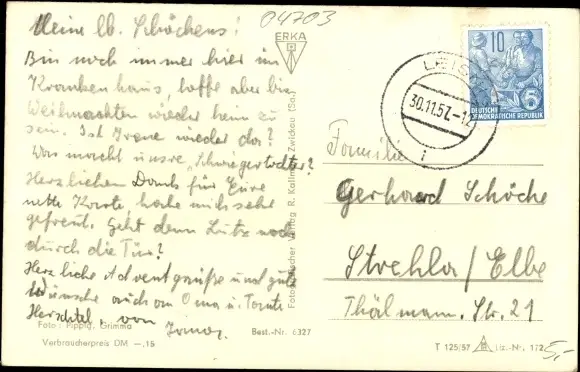 04703
Meine lb. Schöchens!
Bin noch immer hier im
Krankenhaus, hoffe aber bis
Weihnachten wieder heim zu
sein. Ist Irene wieder da?
Was macht unsre Schwiegertochter?
Herzlichen Dank für Eure
nette Karte habe mich sehr
gefreut. Geht denn Lutz noch
durch die Tür?
Herzliche Adventgrüße und gute
Wünsche auch an Oma u. Tante
von
Foto: Pippig, Grimma
Verbraucherpreis DM —,15
Best.-Nr. 6327
ERKA
Fotografischer Verlag R. Zwickau (Sa.)
10
5
DEUTSCHE
DEMOKRATISCHE REPUBLIK
30.11.57.-12
i
Familie
Gerhard Schöche
Strehla/Elbe
Thälmann. Str. 21
T 125/57
Liz.-Nr. 172
5,-